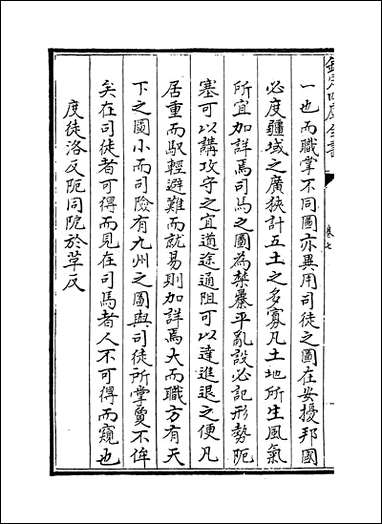 欽定四庫全書
卷七
一也而職掌不同圖亦異用司徒之圖在安擾邦國
必度疆域之廣狹計五土之多寡凡土地所生風氣
所宜加詳焉司馬之圖為禁暴平亂設必記形勢阨
塞可以講攻守之宜道途通阻可以達進退之便凡
居重而馭輕避難而就易則加詳焉大而職方有天
下之圖小而司險有九州之圖與司徒所掌夐不侔
矣在司徒者可得而見在司馬者人不可得而窺也
度徒洛反阨同隘於革反